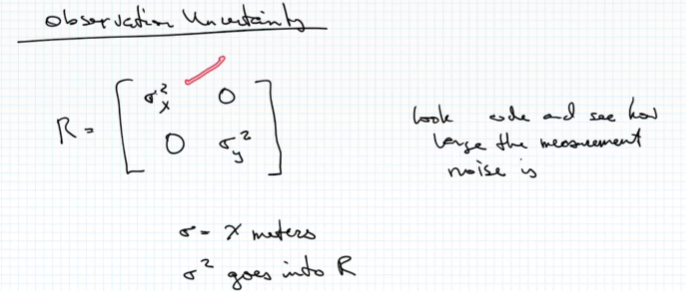 Observation Uncertainty
R = [ σx² 0
0 σy² ]
look code and see how
large the measurement
noise is
σ = X meters
σ² goes into R